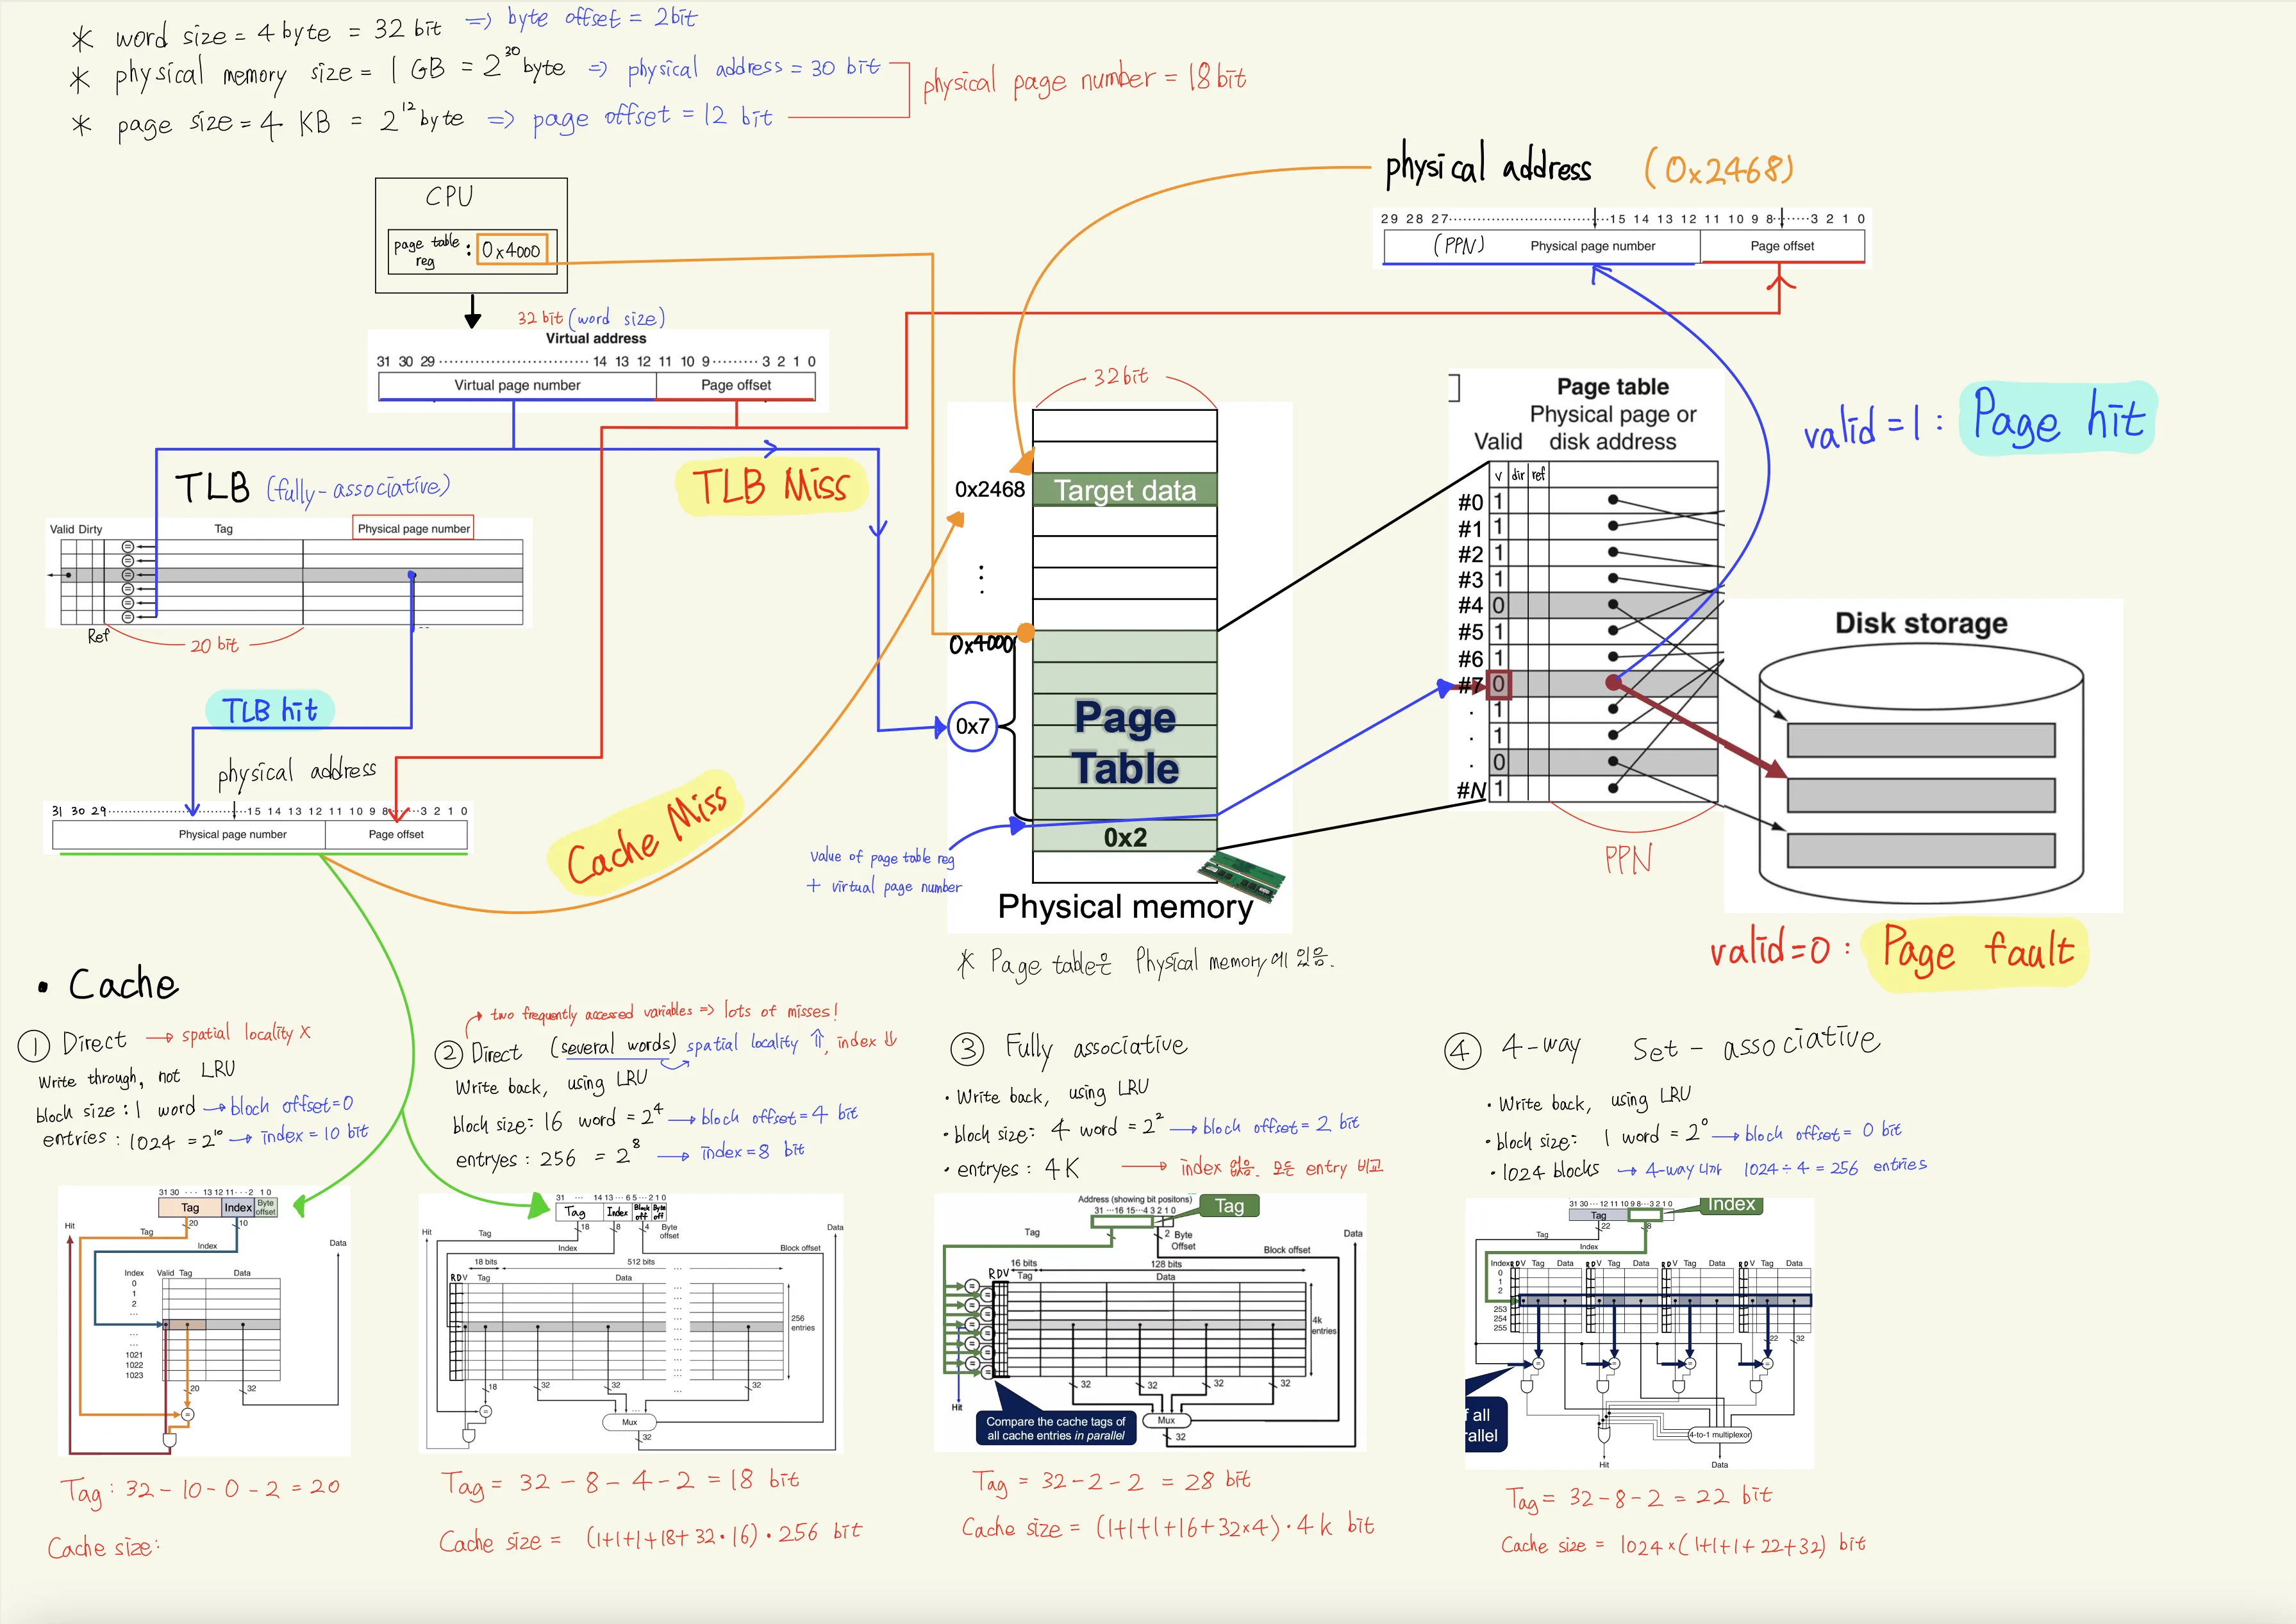 * word size = 4 byte = 32 bit ⇒ byte offset = 2bit
* physical memory size = 1 GB = 2^30 byte ⇒ physical address = 30 bit
* page size = 4 KB = 2^12 byte ⇒ page offset = 12 bit
physical page number = 18 bit
physical address (0x2468)
29 28 27 15 14 13 12 11 10 9 8 3 2 1 0
(PPN) Physical page number Page offset
CPU
page table reg : 0x4000
32 bit (word size)
Virtual address
31 30 29 14 13 12 11 10 9 3 2 1 0
Virtual page number Page offset
TLB (fully-associative)
TLB Miss
Valid Dirty Tag Physical page number
Ref 20 bit
TLB hit
physical address
31 30 29 15 14 13 12 11 10 9 8 3 2 1 0
Physical page number Page offset
Cache Miss
32bit
0x2468 Target data
0x4000
0x7
Page
Table
0x2
value of page table reg
+ virtual page number
Physical memory
* Page table은 Physical memory에 있음.
Page table
Physical page or
Valid disk address
v dir ref
#0 1
#1 1
#2 1
#3 1
#4 0
#5 1
#6 1
#7 0
. 1
. 1
. 0
#N 1
PPN
valid = 1 : Page hit
Disk storage
valid=0 : Page fault
• Cache
① Direct → spatial locality X
Write through, not LRU
bloch size : 1 word → bloch offset=0
entries : 1024 = 2^10 → index = 10 bit
31 30 ··· 13 12 11 ··· 2 1 0
Tag Index Byte offset
20 10
Hit
Tag
Index
Data
Index Valid Tag Data
0
1
2
...
...
...
1021
1022
1023
20 32
=
Tag : 32 - 10 - 0 - 2 = 20
Cache size:
→ two frequently accessed variables ⇒ lots of misses!
② Direct (several words) spatial locality ⇑, index ⇓
Write back, using LRU
bloch size: 16 word = 2^4 → bloch offset = 4 bit
entryes : 256 = 2^8 → index = 8 bit
31 ··· 14 13 ··· 6 5 ··· 2 1 0
Tag Index Block off Byte off
18 8 4 Byte offset
Hit Tag Data
Index Block offset
18 bits 512 bits
R D V Tag Data
256 entries
18 32 32 32
=
Mux
32
Tag = 32 - 8 - 4 - 2 = 18 bit
Cache size = (1+1+1+18+32·16)·256 bit
③ Fully associative
• Write back, using LRU
• bloch size: 4 word = 2^2 → bloch offset = 2 bit
• entryes : 4K → index 없음. 모든 entry 비교
Address (showing bit positons)
Tag
31 ···16 15···4 3 2 1 0
Tag 2 Byte Offset Data
Block offset
16 bits 128 bits
R D V Tag Data
4k entries
32 32 32 32
Hit
Compare the cache tags of
all cache entries in parallel
Mux
32
Tag = 32-2-2 = 28 bit
Cache size = (1+1+1+16+32×4)·4k bit
④ 4-way Set-associative
• Write back, using LRU
• bloch size: 1 word = 2^0 → bloch offset = 0 bit
• 1024 blochs → 4-way니까 1024÷4 = 256 entries
31 30 ··· 12 11 10 9 8 ··· 3 2 1 0
Index
Tag
22 8
Tag
Index
Index R D V Tag Data R D V Tag Data R D V Tag Data R D V Tag Data
0
1
2
253
254
255
22 32
f all
rallel
4-to-1 multiplexor
Hit Data
Tag = 32-8-2 = 22 bit
Cache size = 1024×(1+1+1+22+32) bit